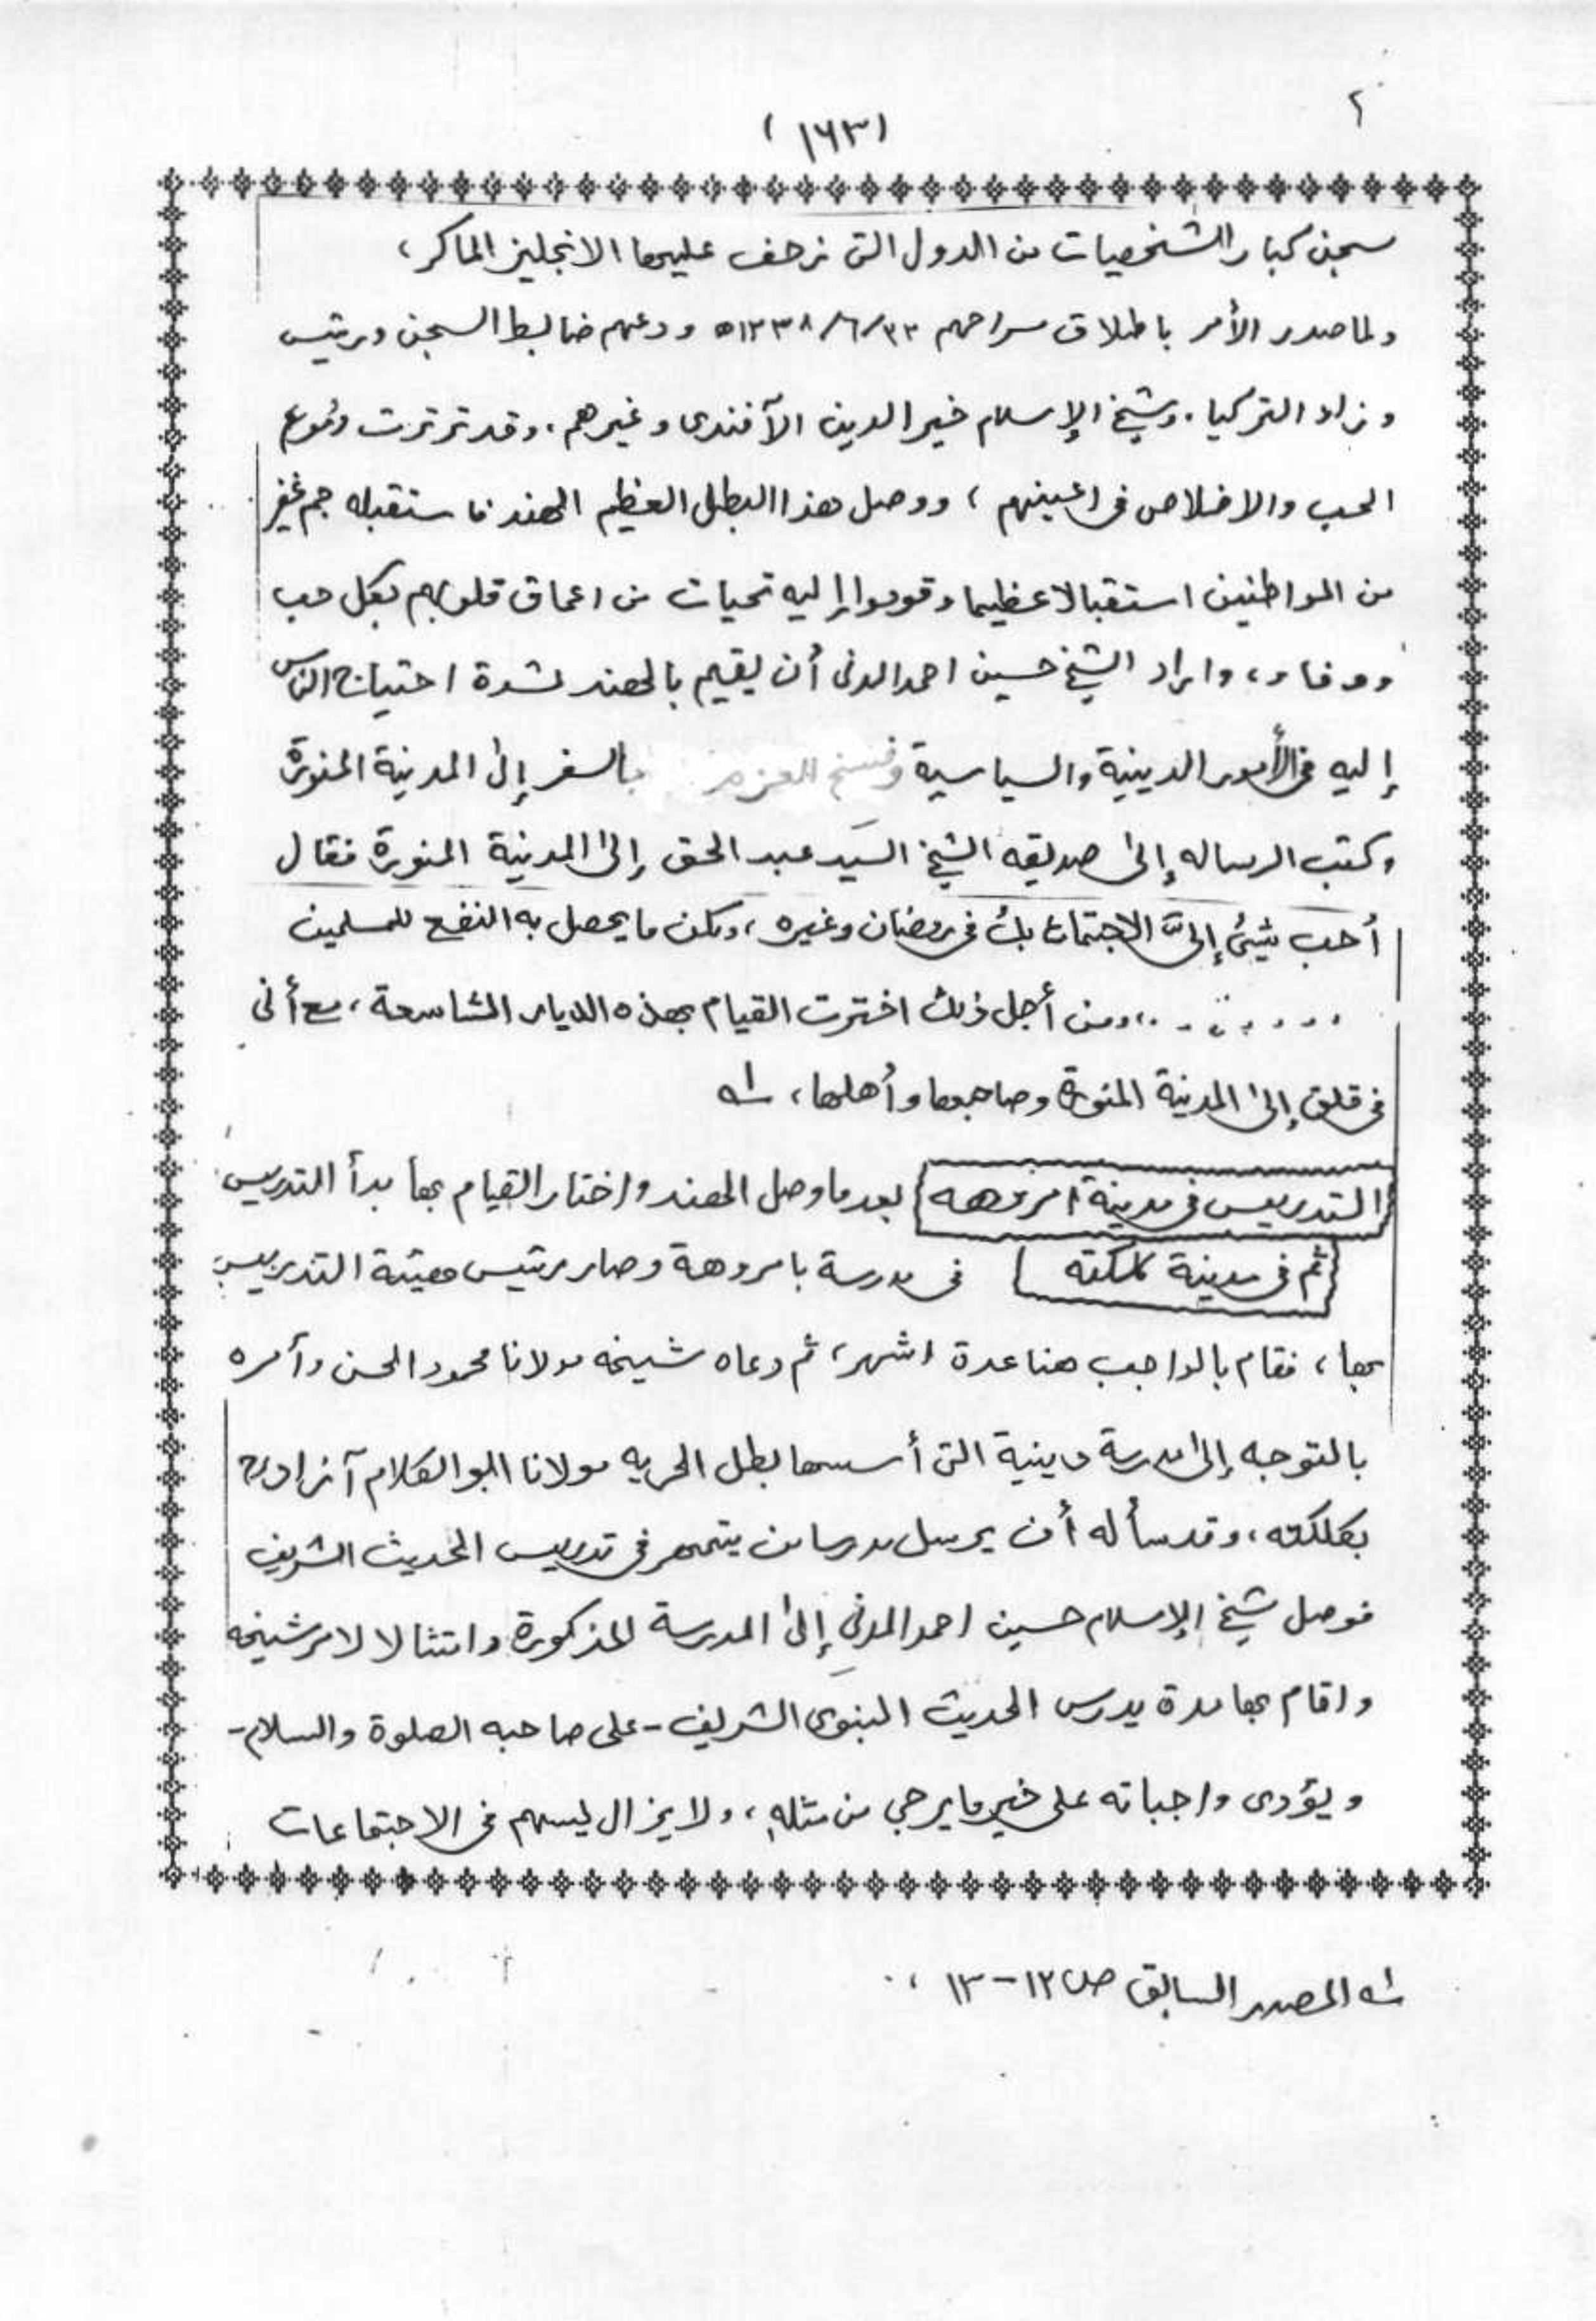 (١٦٣)
سجن كبار الشخصيات من الدول التى زحف عليها الانجليز الماكر،
ولما صدر الأمر باطلاق سراحهم ٢٣/٦/١٣٣٨ه ودعهم ضابط السجن ورئيس
وزراء التركيا. وشيخ الإسلام خير الدين الآفندى وغيرهم، وقد ترترت دموع
الحب والاخلاص فى اعينهم، ووصل هذا البطل العظيم الهند فاستقبله جم غفير
من المواطنين استقبالا عظيما وقدموا إليه تحيات من اعماق قلوبهم بكل حب
ووفاء، واراد الشيخ حسين احمد المدنى أن يقيم بالهند لشدة احتياج الناس
إليه فى الأمور الدينية والسياسية وفسخ العزم بالسفر إلى المدينة المنورة
وكتب الرساله إلى صديقه الشيخ السيد عبد الحق إلى المدينة المنورة فقال
أحب شيئ إلىَّ الاجتماع بك فى رمضان وغيره، ولكن ما يحصل به النفع للمسلمين
........، ومن أجل ذلك اخترت القيام بهذه الديار الشاسعة، مع أنى
فى قلق إلى المدينة المنورة وصاحبها وأهلها، ١ـه
التدريس فى مدينة امروهه بعد ما وصل الهند واختار القيام بها بدأ التدريس
ثم فى مدينة كلكته فى مدرسة بامروهة وصار رئيس هيئة التدريس
بها، فقام بالواجب هنا عدة اشهر، ثم دعاه شيخه مولانا محمود الحسن وأمره
بالتوجه إلى مدرسة دينية التى أسسها بطل الحريه مولانا ابو الكلام آزاد رح
بكلكته، وقد سأله أن يرسل مدرسا من يتمهر فى تدريس الحديث الشريف
فوصل شيخ الإسلام حسين احمد المدنى إلى المدرسة المذكورة وامتثالا لامر شيخه
واقام بها مدة يدرس الحديث النبوى الشريف - على صاحبه الصلوة والسلام -
ويؤدى واجباته على خير ما يرجى من مثله، ولا يزال يسهم فى الاجتماعات
١ـه المصدر السابق ص ١٢-١٣،